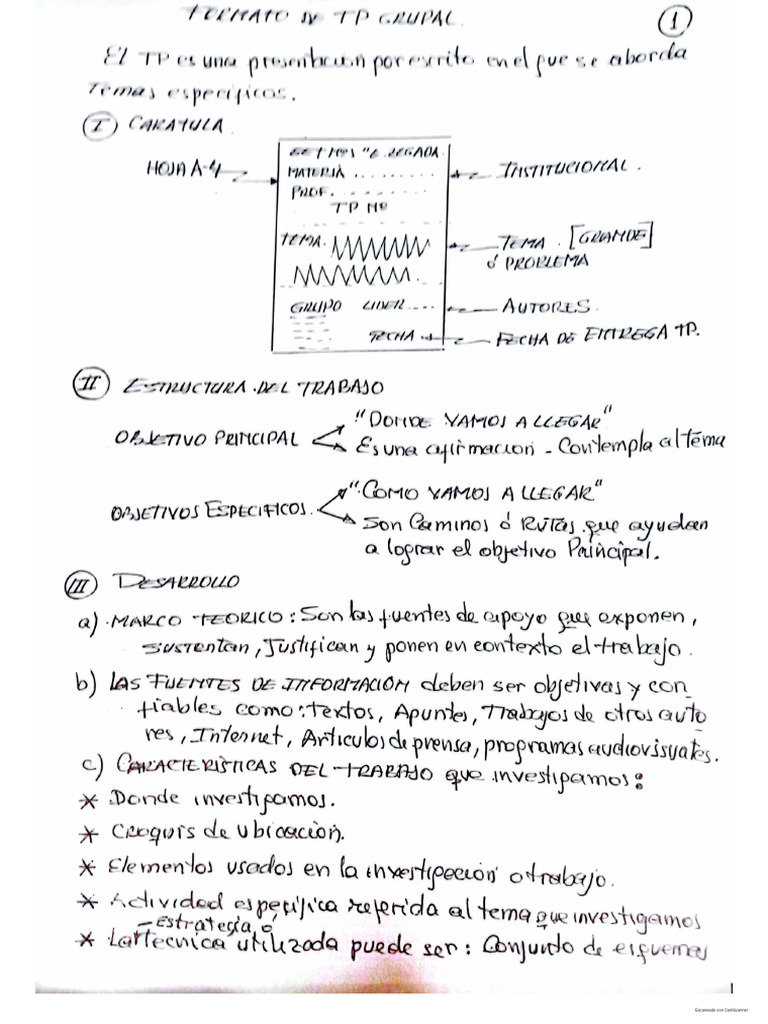 FORMATO DE TP GRUPAL. ①
El TP es una presentación por escrito en el que se aborda
Temas específicos.
(I) CARATULA
HOJA A-4
MATERIA ..........
PROF. ..........
TP Nº
TEMA.
GRUPO LIDER ....
FECHA
INSTITUCIONAL.
TEMA. [GRANDE]
ó PROBLEMA
AUTORES.
FECHA DE ENTREGA TP.
(II) ESTRUCTURA DEL TRABAJO
OBJETIVO PRINCIPAL
"DONDE VAMOS A LLEGAR"
Es una afirmacion - Contempla al tema
OBJETIVOS ESPECIFICOS.
"COMO VAMOS A LLEGAR"
Son Caminos ó RUTAS que ayudan
a lograr el objetivo Principal.
(III) DESARROLLO
a) MARCO TEORICO: Son las fuentes de apoyo que exponen,
sustentan, Justifican y ponen en contexto el trabajo.
b) LAS FUENTES DE INFORMACION deben ser objetivas y con
fiables como: textos, Apuntes, Trabajos de otros auto
res, Internet, Articulos de prensa, programas audiovisuales.
c) CARACTERÍSTICAS DEL TRABAJO que investigamos:
* Donde investigamos.
* Croquis de ubicación.
* Elementos usados en la investigación o trabajo.
* Actividad especifica referida al tema que investigamos
- estrategia ó
* La tecnica utilizada puede ser: Conjunto de esquemas
1
Escaneado con CamScanner